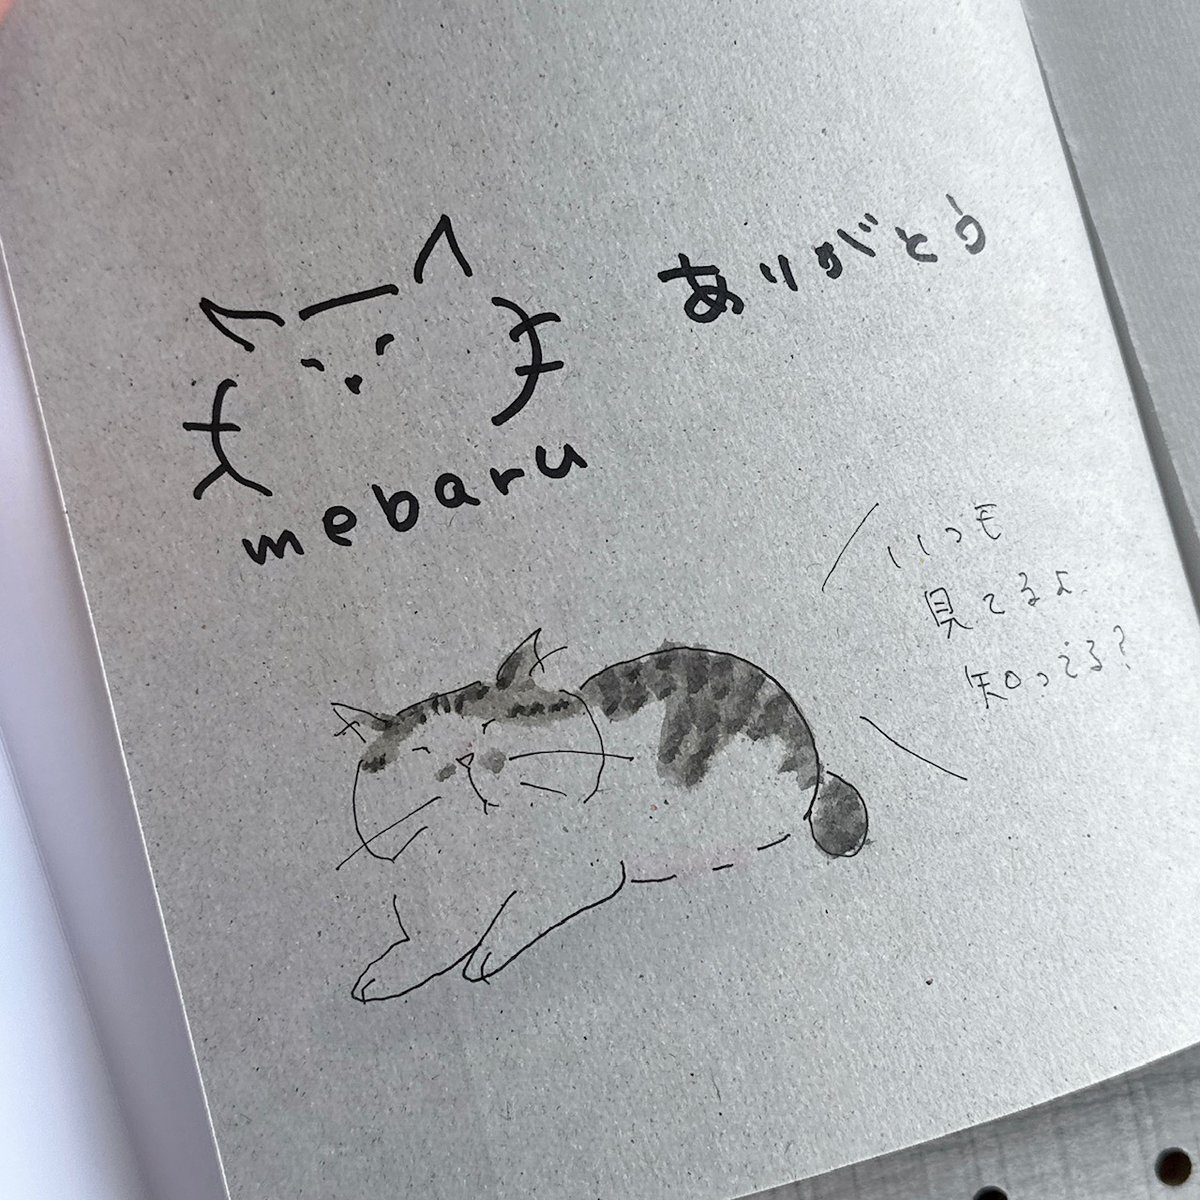 ありがとう
mebaru
いつも
見てるよ
知ってる?